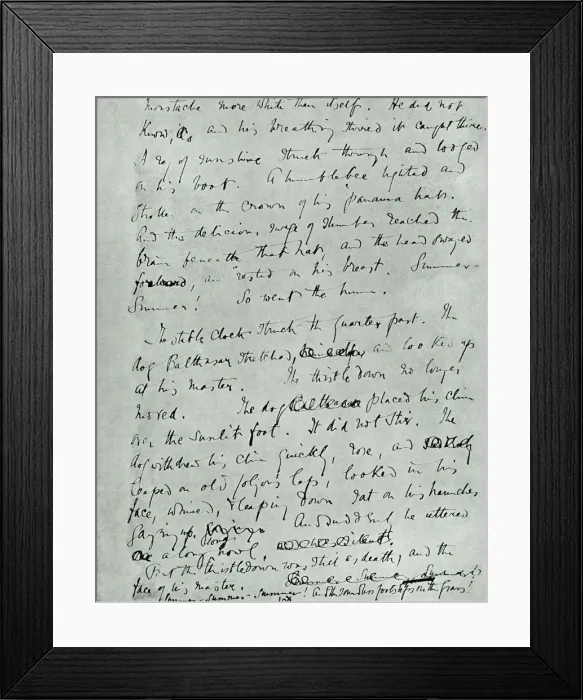 moustache more white than itself. He did not
know, and his breathing stirred it caught there.
A ray of sunshine struck through and lodged
on his boot. A humblebee lighted and
strolled on the crown of his panama hat.
And the delicious surge of slumber reached the
brain beneath that hat, and the head swayed
forward, and rested on his breast. Summer-
Summer! So went the hum.
The stable clock struck the quarter past. The
dog Balthasar stretched, and looked up
at his master. The thistledown no longer
moved. The dog Balthasar placed his chin
over the sunlit foot. It did not stir. The
dog withdrew his chin quickly, rose, and
leaped on old Jolyon's lap, looked in his
face, whined, & leaping down sat on his haunches
gazing up. And suddenly he uttered
a long howl,
But the thistledown was still as death, and the
face of his master.
Summer - Summer - Summer! And the soundless footsteps on the grass!